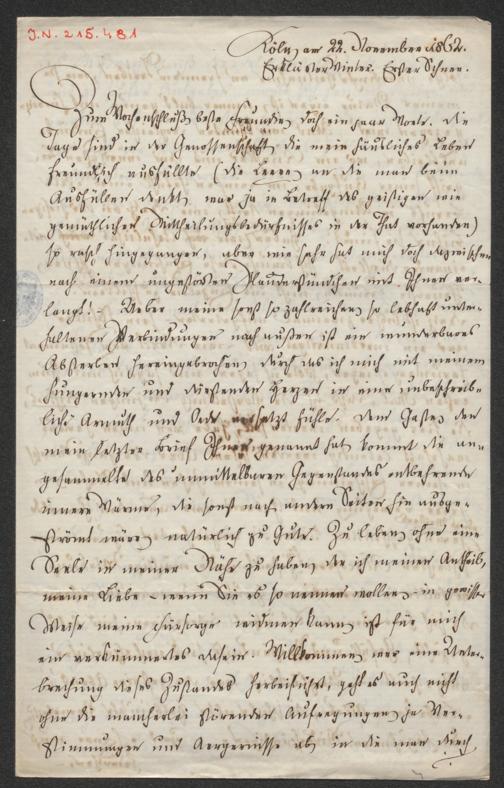 J.N. 215.481
Köln, am 22. November 1862.
Erster Winter. Erster Schnee.
Zum Wochenschluß beste Freundin, doch ein paar Worte. Die
Tage sind in der Genossenschaft, die mein häusliches Leben
freundlich ausfüllte (die Leere, an die man beim
Ausfüllen denkt, war ja in Betreff des geistigen wie
gemüthlichen Mittheilungsbedürfnisses in der That vorhanden)
so rasch hingegangen, aber wie sehr hat mich doch dazwischen
nach einem ungestörten Plauderstündchen mit Ihnen ver-
langt! – Ueber meine sonst so zahlreichen, so lebhaft unter-
haltenen Verbindungen nach außen ist ein wunderbares
Absterben hereingebrochen, durch das ich mich mit meinem
hungernden und dürstenden Herzen in eine unbeschreib-
liche Armuth und Oede versetzt fühle. Dem Gaste, den
mein letzter Brief Ihnen genannt hat, kommt die an-
gesammelte des unmittelbaren Gegenstandes entbehrende
innere Wärme, die sonst nach andern Seiten hin ausge-
strömt wäre, natürlich zu Gute. Zu leben, ohne eine
Seele in meiner Nähe zu haben, der ich meinen Antheil,
meine Liebe – wenn Sie es so nennen wollen – in gewisser
Weise meine Fürsorge widmen kann, ist für mich
ein verkümmertes Dasein. Willkommen, wer eine Unter-
brechung dieses Zustandes herbeiführt, geht es auch nicht
ohne die mancherlei störenden Aufregungen, ja Ver-
stimmungen und Aergernisse ab, in die man durch